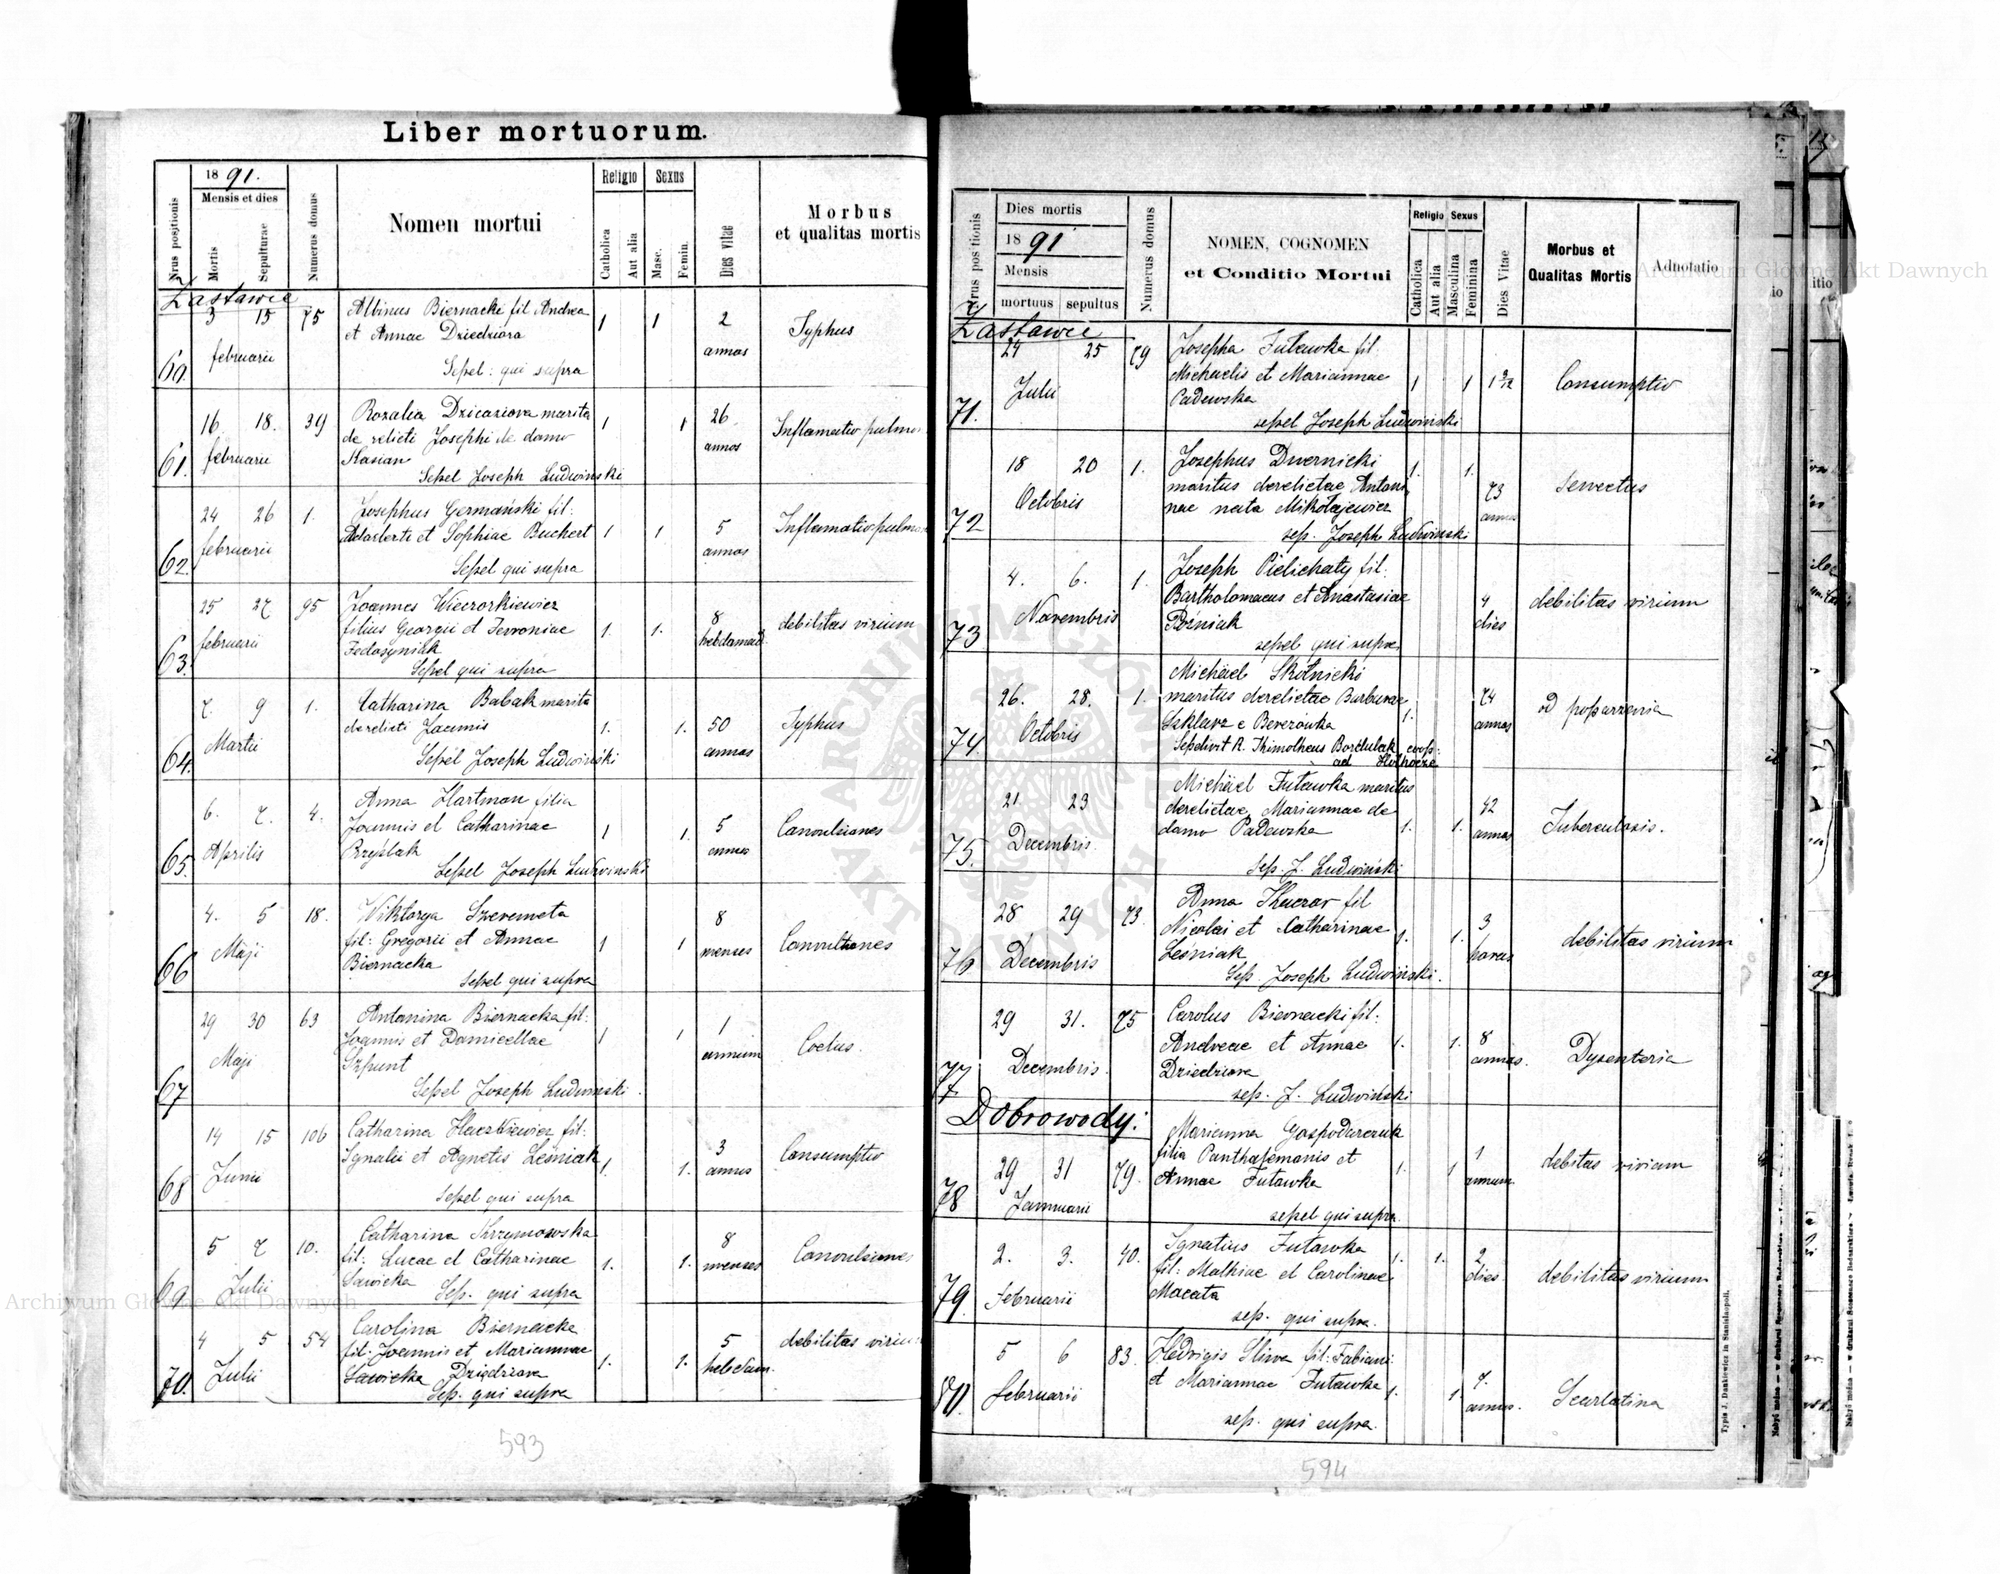 Liber mortuorum.
Nrus positionis
1891.
Mensis et dies
Mortis
Sepulturae
Numerus domus
Nomen mortui
Religio
Catholica
Aut alia
Sexus
Masc.
Femin.
Dies vitae
Morbus
et qualitas mortis
Zastawie
60. 3 15 februarii 75
Albinus Biernacki fil Andrea
et Annae Dziedziora
Sepel: qui supra
1 1 2 annos Typhus
61. 16 18. februarii 39
Rozalia Dzicaziova marita
de relicti Josephi de domo
Kasian
Sepel Joseph Ludwinski
1 1 26 annos Inflamatio pulmo
62. 24 26 februarii 1.
Josephus Germański fil:
Adalberti et Sophiae Buckert
Sepel qui supra
1 1 5 annos Inflamatio pulmo
63. 25 27 februarii 95
Joannes Wieczorkiewicz
filius Georgii et Fevroniae
Fedasyniak
Sepel qui supra
1. 1. 8 hebdomad. debilitas virium
64. 7 9 Martii 1.
Catharina Babak marita
derelicti Joannis
Sepel Joseph Ludwiński
1. 1. 50 annos Typhus
65. 6. 7. Aprilis 4.
Anna Hartman filia
Joannis et Catharinae
Brzyślak
Sepel Joseph Ludwinski
1 1. 5 annos Convulsiones
66 4. 5 Maji 18.
Wiktorya Szeremeta
fil: Gregorii et Annae
Biernacka
Sepel qui supra
1 1 8 menses Convultiones
67 29 30 Maji 63
Antonina Biernacka fil:
Joannis et Domicellae
Szpunt
Sepel Joseph Ludwinski
1 1 1 annum Coctus.
68 14 15 Junii 106
Catharina Haczkiewicz fil:
Ignatii et Agnetis Leśniak
Sepel qui supra
1. 1. 3 annos Consumptio
69. 5 7 Julii 10.
Catharina Krzymowska
fil: Lucae et Catharinae
Sawicka Sep. qui supra
1. 1. 8 menses Convulsiones
70. 4 5 Julii 54
Carolina Biernacka
fil: Joannis et Mariannae
Sawicka Dziedziora
Sep. qui supra
1. 1. 5 hebdom. debilitas virium
593
Nrus positionis
Dies mortis
1891
Mensis
mortuus sepultus
Numerus domus
NOMEN, COGNOMEN
et Conditio Mortui
Religio Sexus
Catholica
Aut alia
Masculina
Feminina
Dies Vitae
Morbus et
Qualitas Mortis
Adnotatio
Zastawie
71. 24 25 Julii 79
Josepha Futawka fil.
Michaelis et Mariannae
Padewska
sepel Joseph Ludwinski
1 1 Consumptio
72 18 20 Octobris 1.
Josephus Dwernicki
maritus derelictae Antoni
nae nata Mikołajewicz
sep. Joseph Ludwinski
1. 1. 73 annos Senectus
73 4. 6. Novembris 1.
Joseph Pielichaty fil.
Bartholomaeus et Anastasiae
Poźniak
sepel qui supra
4 dies debilitas virium
74 26. 28. Octobris 1.
Michael Skolnicki
maritus derelictae Barbarae
Szklarz e Berezówka
Sepelivit R. Thimotheus Borctulak coop:
ad
1. 74 annos od poparzenia
75. 21 23 Decembris. 
Michael Futawka maritus
derelictae Mariannae de
domo Padewska
Sep. J. Ludwiński
1. 1. 42 annos Tuberculosis.
76 28 29 Decembris 73
Anna Tkaczar fil
Nicolai et Catharinae
Leśniak
Sep. Joseph Ludwinski.
1. 1. 3 horas debilitas virium
77 29 31. Decembris. 75
Carolus Biernacki fil:
Andreae et Annae
Dziedziora
sep. J. Ludwinski
1. 1. 8 annos. Dysenteria
Dobrowody:
78 29 31 Januarii 79.
Marianna Gospodarczuk
filia Panthalemonis et
Annae Futawka
sepel qui supra
1. 1 1 annum debitas virium
79. 2. 3. Februarii 40.
Ignatius Futawka
fil: Mathiae et Carolinae
Macata
sep. qui supra.
1. 1. 2 dies debilitas virium
80. 5 6 februarii 83.
Hedvigis Sliwa fil: Fabiani
et Mariannae Futawka
sep. qui supra.
1. 1. 7. annos. Scarlatina
594
Typis J. Dankiewicz in Stanislopoli.
Archiwum Główne Akt Dawnych
Archiwum Główne Akt Dawnych
ARCHIWUM GŁÓWNE
AKT DAWNYCH